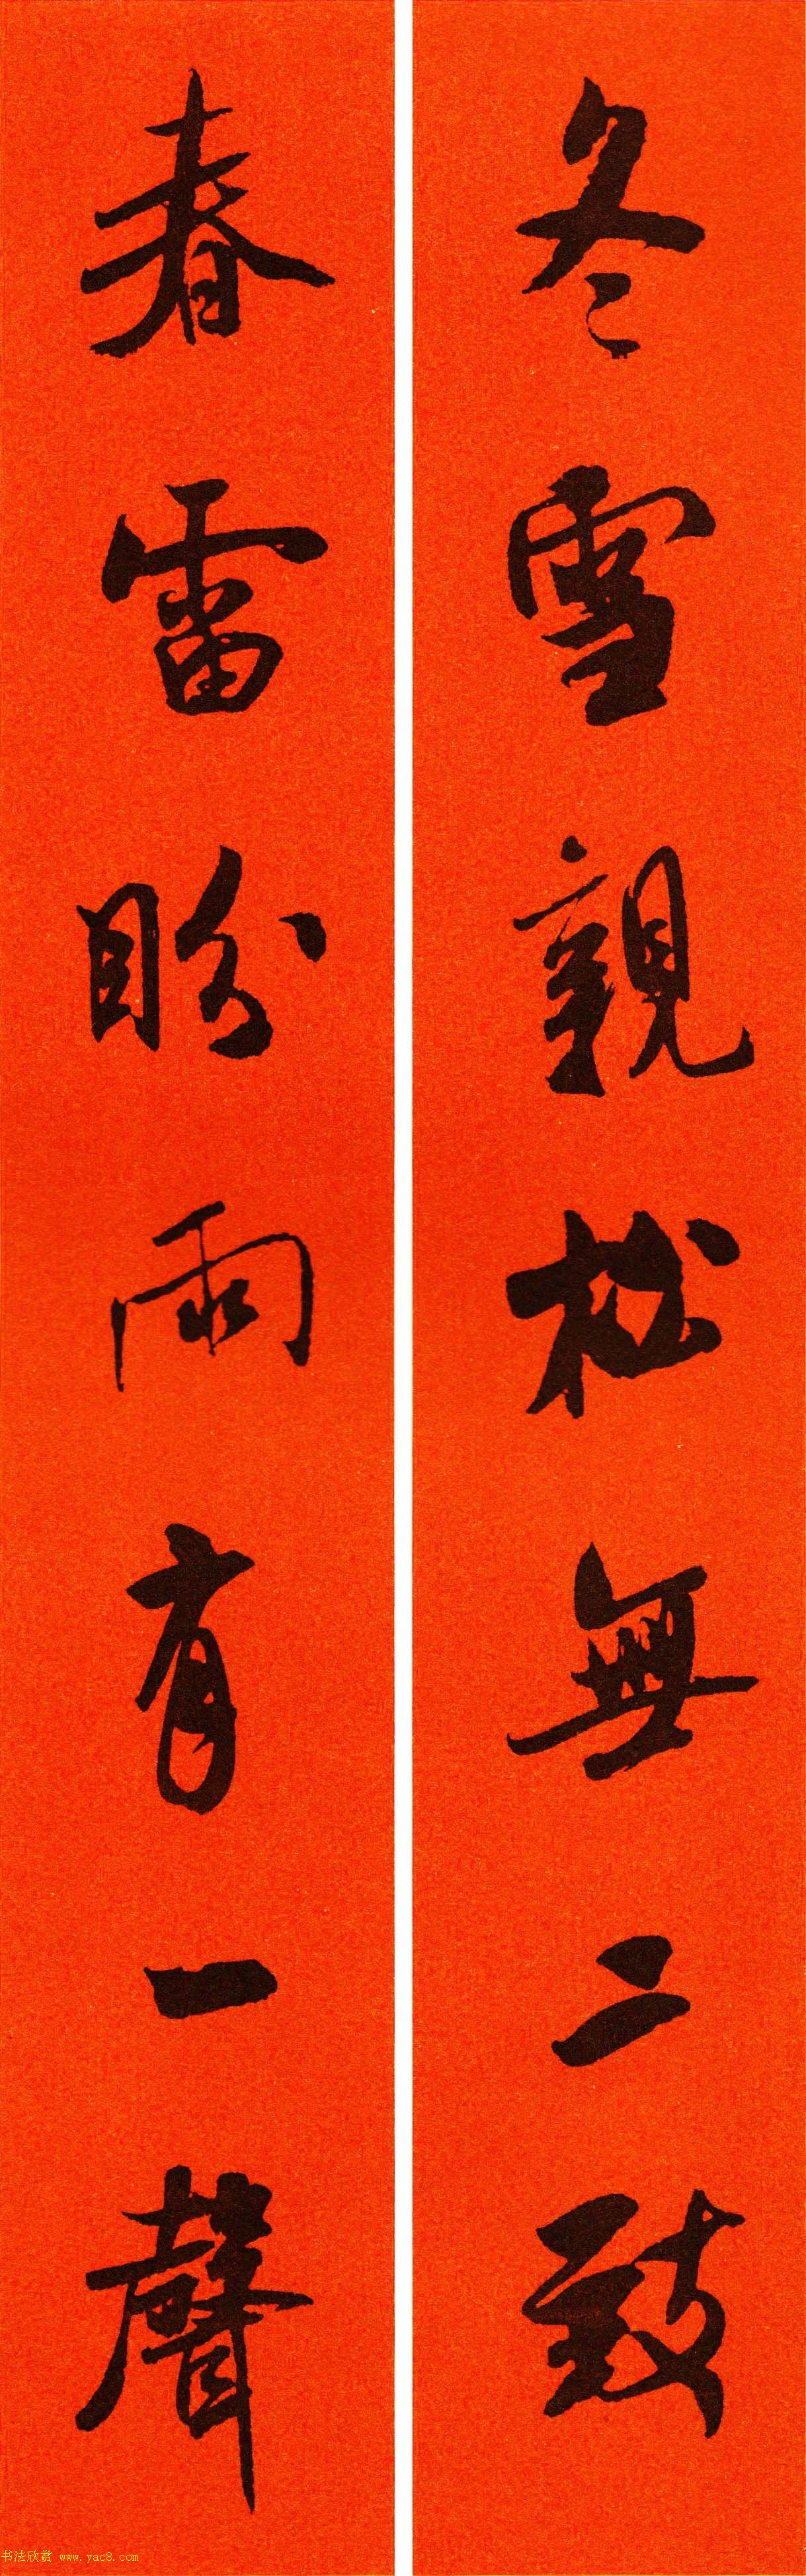 冬雪親松無二致
春雷盼雨有一聲
书法欣赏 www.yac8.com